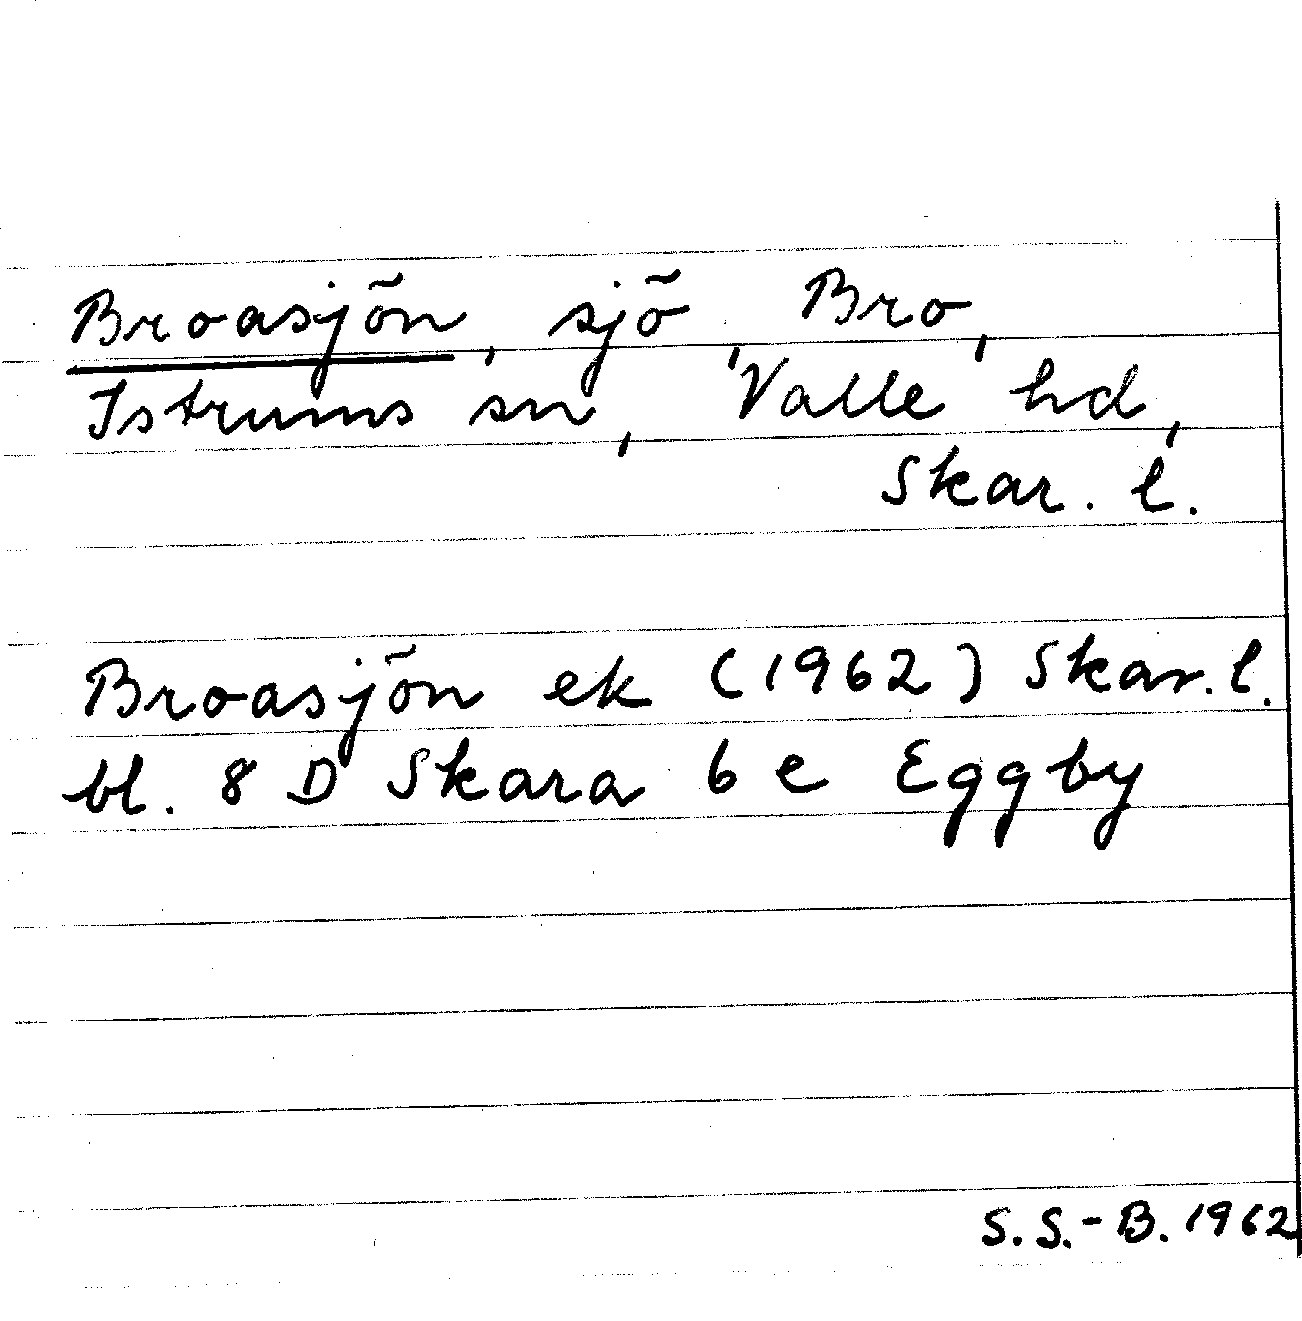 Broasjön, sjö, Bro,
Istrums sn, Valle hd,
Skar. l.
Broasjön ek (1962) Skar. l.
bl. 8 D Skara 6 e Eggby
S. S.-B. 1962